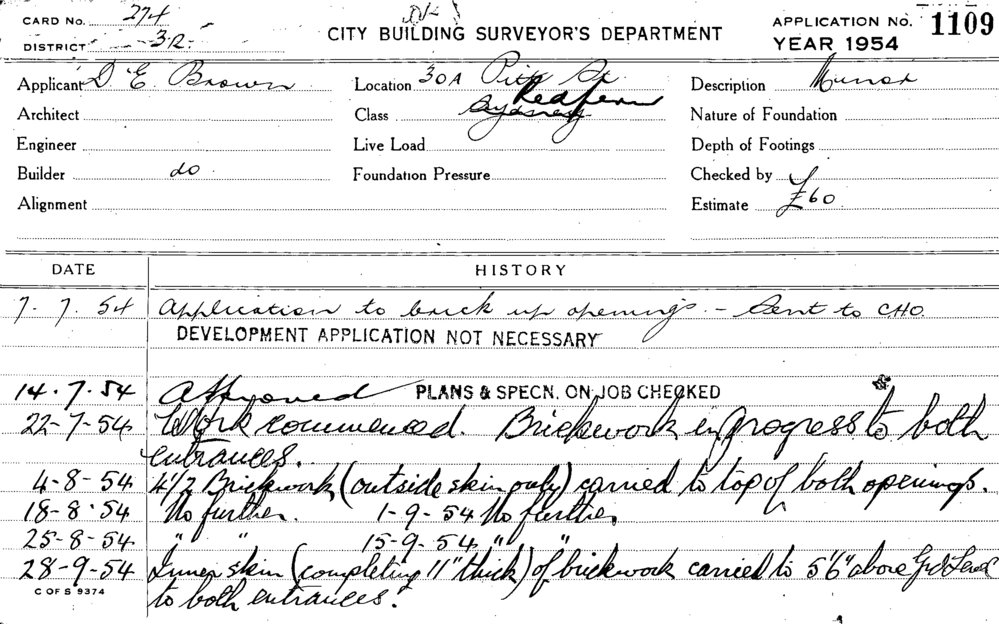 CARD No. 274
DISTRICT 3R.
CITY BUILDING SURVEYOR'S DEPARTMENT
APPLICATION No. 1109
YEAR 1954
Applicant D. E. Brown Location 30A Pitt St Description Minor
Redfern
Architect Class Sydney Nature of Foundation
Engineer Live Load Depth of Footings
Builder do. Foundation Pressure Checked by
Alignment Estimate £60.
DATE HISTORY
7. 7. 54 Application to brick up openings. - Sent to CHO.
DEVELOPMENT APPLICATION NOT NECESSARY
14.7.54 Approved PLANS & SPECN. ON JOB CHECKED
22-7-54 Work commenced. Brickwork in progress to both
entrances.
4-8-54 4½ Brickwork (outside skin only) carried to top of both openings.
18-8-54 No further. 1-9-54 No further
25-8-54 " " 15-9-54 " "
28-9-54 Inner skin (completing 11" thick) of brickwork carried to 5'6" above Grd Level
C OF S 9374 to both entrances.